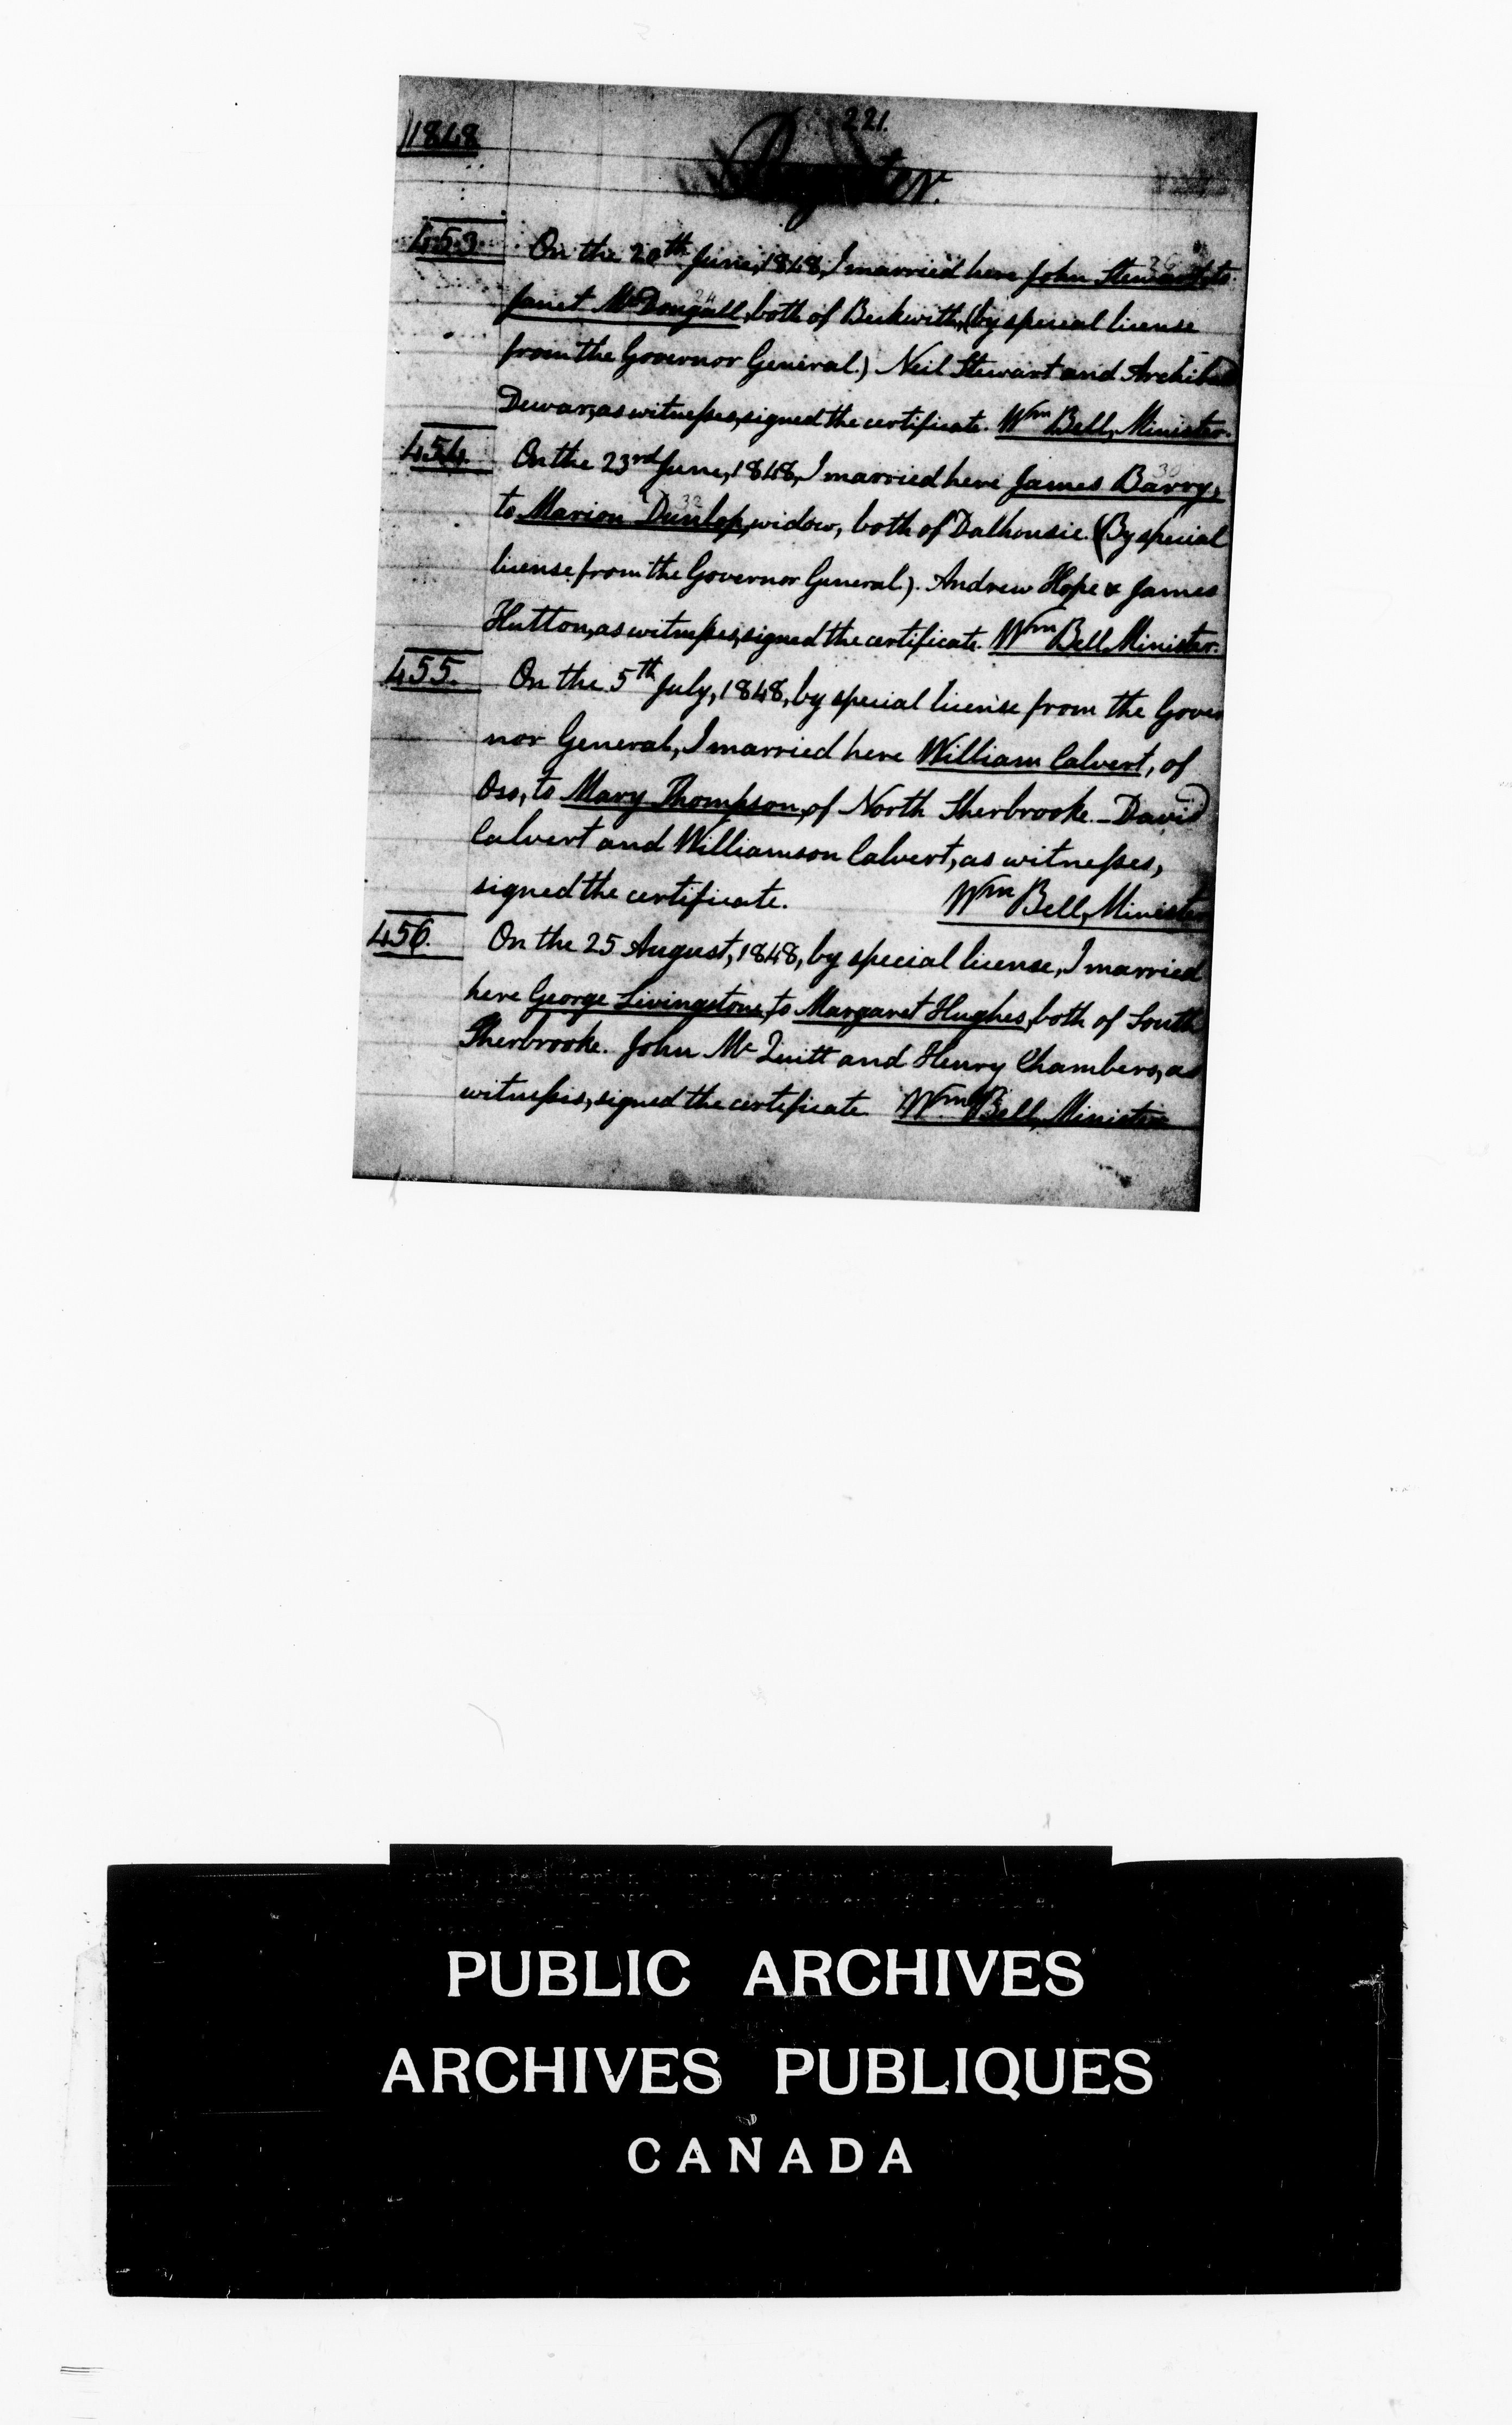 1848
221.
Register.
453. On the 20th June, 1848, I married here John Stewart, to
Janet McDougall, both of Beckwith, (by special license
from the Governor General.) Neil Stewart and Archibald
Dewar, as witnesses, signed the certificate. Wm Bell, Minister.
454. On the 23rd June, 1848, I married here James Barry,
to Marion Dunlop, widow, both of Dalhousie. (By special
license from the Governor General.) Andrew Hope & James
Hutton, as witnesses, signed the certificate. Wm Bell, Minister.
455. On the 5th July, 1848, by special license from the Gover
nor General, I married here William Calvert, of
Oso, to Mary Thompson, of North Sherbrooke. – David
Calvert and Williamson Calvert, as witnesses,
signed the certificate. Wm Bell, Minister
456. On the 25 August, 1848, by special license, I married
here George Livingstone, to Margaret Hughes, both of South
Sherbrooke. John Mc and Henry Chambers, as
witnesses, signed the certificate. Wm Bell, Minister
PUBLIC ARCHIVES
ARCHIVES PUBLIQUES
CANADA